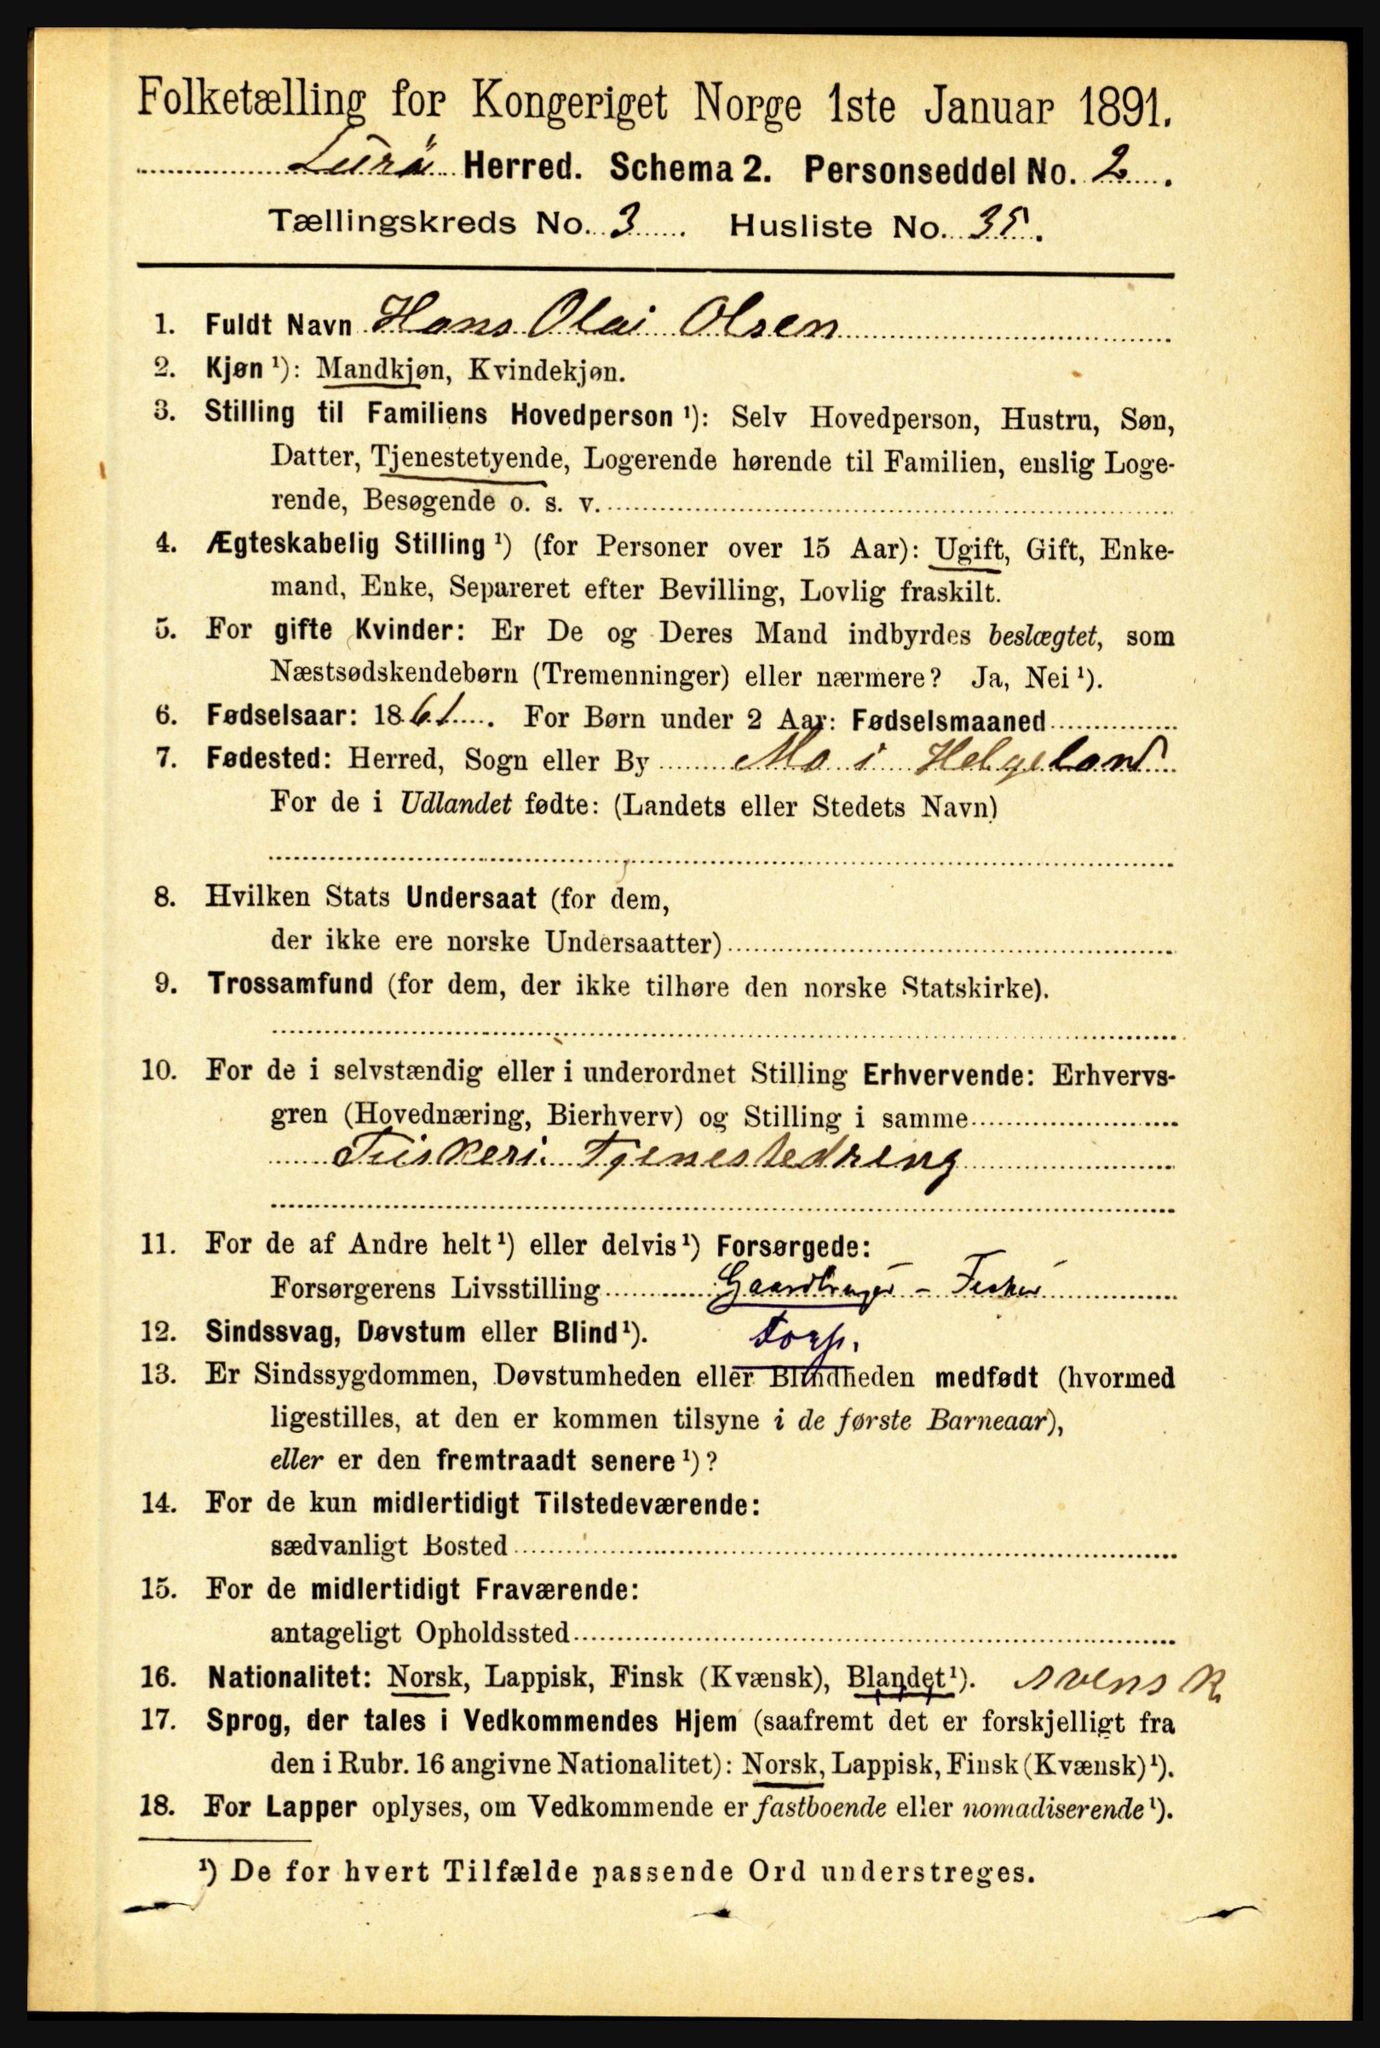 Folketælling for Kongeriget Norge 1ste Januar 1891.
Lurø Herred. Schema 2. Personseddel No. 2.
Tællingskreds No. 3. Husliste No. 35.
1. Fuldt Navn Hans Olai Olsen
2. Kjøn ¹): Mandkjøn, Kvindekjøn.
3. Stilling til Familiens Hovedperson ¹): Selv Hovedperson, Hustru, Søn,
Datter, Tjenestetyende, Logerende hørende til Familien, enslig Loge-
rende, Besøgende o. s. v.
4. Ægteskabelig Stilling ¹) (for Personer over 15 Aar): Ugift, Gift, Enke-
mand, Enke, Separeret efter Bevilling, Lovlig fraskilt.
5. For gifte Kvinder: Er De og Deres Mand indbyrdes beslægtet, som
Næstsødskendebørn (Tremenninger) eller nærmere? Ja, Nei ¹).
6. Fødselsaar: 1861. For Børn under 2 Aar: Fødselsmaaned
7. Fødested: Herred, Sogn eller By Mo i Helgeland
For de i Udlandet fødte: (Landets eller Stedets Navn)
8. Hvilken Stats Undersaat (for dem,
der ikke ere norske Undersaatter)
9. Trossamfund (for dem, der ikke tilhøre den norske Statskirke).
10. For de i selvstændig eller i underordnet Stilling Erhvervende: Erhvervs-
gren (Hovednæring, Bierhverv) og Stilling i samme
Fiskeri Tjenestedreng
11. For de af Andre helt ¹) eller delvis ¹) Forsørgede:
Forsørgerens Livsstilling Gaardbruger - Fisker
12. Sindssvag, Døvstum eller Blind ¹). Forp.
13. Er Sindssygdommen, Døvstumheden eller Blindheden medfødt (hvormed
ligestilles, at den er kommen tilsyne i de første Barneaar),
eller er den fremtraadt senere ¹)?
14. For de kun midlertidigt Tilstedeværende:
sædvanligt Bosted
15. For de midlertidigt Fraværende:
antageligt Opholdssted
16. Nationalitet: Norsk, Lappisk, Finsk (Kvænsk), Blandet ¹). svensk
17. Sprog, der tales i Vedkommendes Hjem (saafremt det er forskjelligt fra
den i Rubr. 16 angivne Nationalitet): Norsk, Lappisk, Finsk (Kvænsk) ¹).
18. For Lapper oplyses, om Vedkommende er fastboende eller nomadiserende ¹).
¹) De for hvert Tilfælde passende Ord understreges.